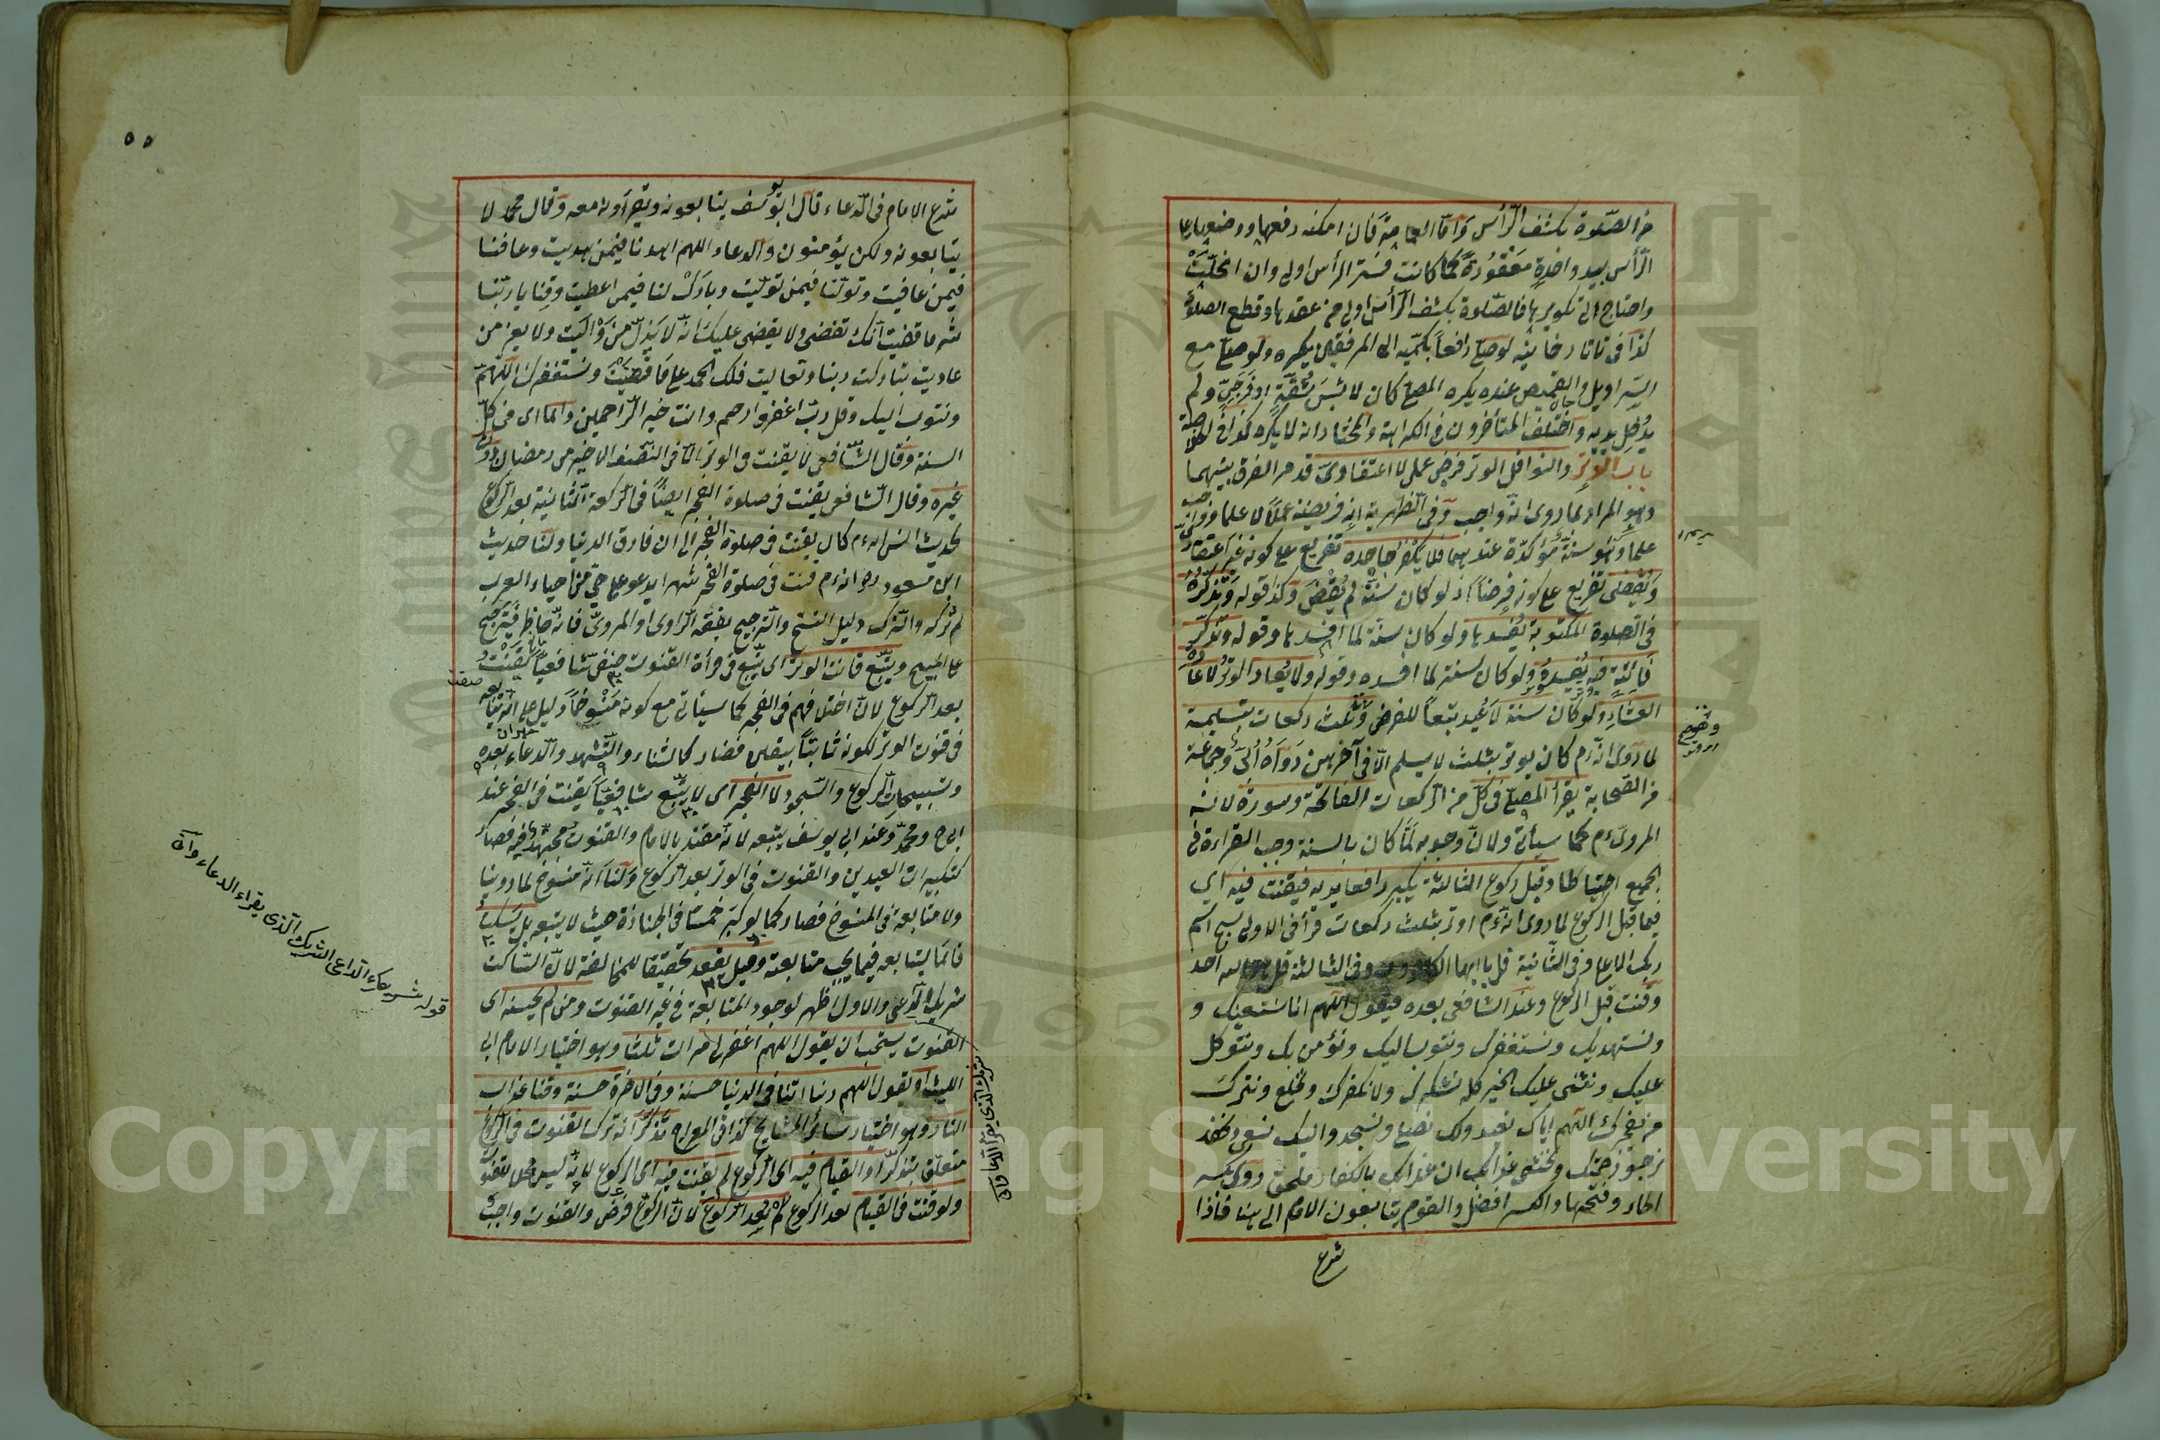 من الصلوة بكشف الرأس وأما العمامة فان امكنه رفعها ووضعها على
الرأس بيد واحدة معقودة كما كانت فستر الرأس اولى وان انحلت
واحتاج الى تكويرها فالصلوة بكشف الرأس اولى من عقدها وقطع الصلوة
كذا فى تاتارخانيه لو صلى رافعا بكميه الى المرفقين يكره ولو صلى مع
السراويل والقميص عنده يكره المصلى كان لابس شقة او فرجى ولم
يدخل يديه واختلف المتأخرون فى الكراهة والمختار انه لا يكره كذا فى الخلاصة
باب الوتر والنوافل الوتر فرض عملى لا اعتقادى قد مر الفرق بينهما
وهو المراد بما روى انه واجب وفى الظهرية انه فريضة عملا لا علما وواجب
علما وهو سنة مؤكدة عندهما فلا يكفر جاحده تفريع على كونه غير اعتقادى
ويقضى تفريع على كونه فرضا اذ لو كان سنة لم يقض وكذا قوله وتذكره
فى الصلوة المكتوبة يفسدها ولو كان سنة لما افسدها وقوله وتذكر
فائتة فيه يفسده ولو كان سنة لما افسده وقوله ولا يعاد الوتر لاعادة
العشاء ولو كان سنة لاعيد تبعا للفرض وثلث ركعات بتسليمة
لما روى انه ءم كان يوتر بثلث لا يسلم الا فى آخرهن رواه أبى وجماعة
من الصحابة يقرأ المصلى فى كل من الركعات الفاتحة وسورة لانه
المروى ءم كما سيأتى ولان وجوبه لما كان بالسنة وجب القراءة فى
الجميع احتياطا وقبل ركوع الثالثة يكبر رافعا يديه فيقنت فيه اى
فيما قبل الركوع لما روى انه ءم اوتر بثلث ركعات قرأ فى الاولى سبح اسم
ربك الاعلى وفى الثانية قل يا ايها الكافرون وفى الثالثة قل هو الله احد
وقنت قبل الركوع وعند الشافعى بعده فيقول اللهم انا نستعينك و
ونستهديك ونستغفرك ونتوب اليك ونؤمن بك ونتوكل
عليك ونثنى عليك الخير كله نشكرك ولا نكفرك ونخلع ونترك
من يفجرك اللهم اياك نعبد ولك نصلى ونسجد واليك نسعى ونحفد
نرجو رحمتك ونخشى عذابك ان عذابك بالكفار ملحق روى بكسر
الحاء وفتحها والكسر افضل والقوم يتابعون الامام الى هنا فاذا
شرع
٥٥
شرع الامام فى الدعاء قال ابو يوسف يتابعونه ويقرأونه معه وقال محمد لا
يتابعونه ولكن يؤمنون والدعاء اللهم اهدنا فيمن هديت وعافنا
فيمن عافيت وتولنا فيمن توليت وبارك لنا فيمن اعطيت وقنا يا ربنا
شر ما قضيت انك تقضى ولا يقضى عليك انه لا يذل من واليت ولا يعز من
عاديت تباركت ربنا وتعاليت فلك الحمد على ما قضيت ونستغفرك اللهم
ونتوب اليك وقل رب اغفر وارحم وانت خير الراحمين دائما اى فى كل
السنة وقال الشافعى لا يقنت فى الوتر الا فى النصف الاخير من رمضان دون
غيره وقال الشافعى يقنت فى صلوة الفجر ايضا فى الركعة الثانية بعد الركوع
لحديث انس انه ءم كان يقنت فى صلوة الفجر الى ان فارق الدنيا ولنا حديث
ابن مسعود رض انه ءم قنت فى صلوة الفجر شهرا يدعو على حى من احياء العرب
ثم تركه والترك دليل النسخ والترجيح بفقه الراوى او المروى فانه حاظر فيترجح
على المبيح ويتبع قانت الوتر اى يتبع فى قرأة القنوت حنفى شافعيا يقنت
بعد الركوع لان اختلافهم فى الفجر كما سيأتى مع كونه منسوخا دليل على انه يتابعه
فى قنوت الوتر لكونه ثابتا بيقين فصار كالثناء والتشهد والدعاء بعده
وتسبيحات الركوع والسجود لا الفجر اى لا يتبع شافعيا يقنت فى الفجر عند
ابى ح ومحمد وعند ابى يوسف يتبعه لانه مقتد بالامام والقنوت مجتهد فيه فصار
كتكبيرات العيدين والقنوت فى الوتر بعد الركوع ولنا انه منسوخ لما روينا
ولا متابعة فى المنسوخ فصار كما لو كبر خمسا فى الجنازة حيث لا يتبعه بل يسكت
فانما يتابعه فيما يجب متابعته وقيل يقعد تحقيقا للمخالفة لان الساكت
شريك الداعى والاول اظهر لوجود المتابعة فى غير القنوت ومن لم يحسنه اى
القنوت يستحب ان يقول اللهم اغفر لى مرات ثلثا وهو اختيار الامام ابى
الليث او يقول اللهم ربنا آتنا فى الدنيا حسنة وفى الآخرة حسنة وقنا عذاب
النار وهو اختيار سائر المشايخ كذا فى المعراج تذكر انه ترك القنوت فى الركوع
متعلق بتذكر او القيام فيه اى الركوع لم يقنت فيه اى الركوع لانه ليس محل للقنوت
ولو قنت فى القيام بعد الركوع لم يعد الركوع لان الركوع فرض والقنوت واجب
قوله شريك الداعى الشريك الذى يقراء الدعاء
Copyright © King Saud University
1957